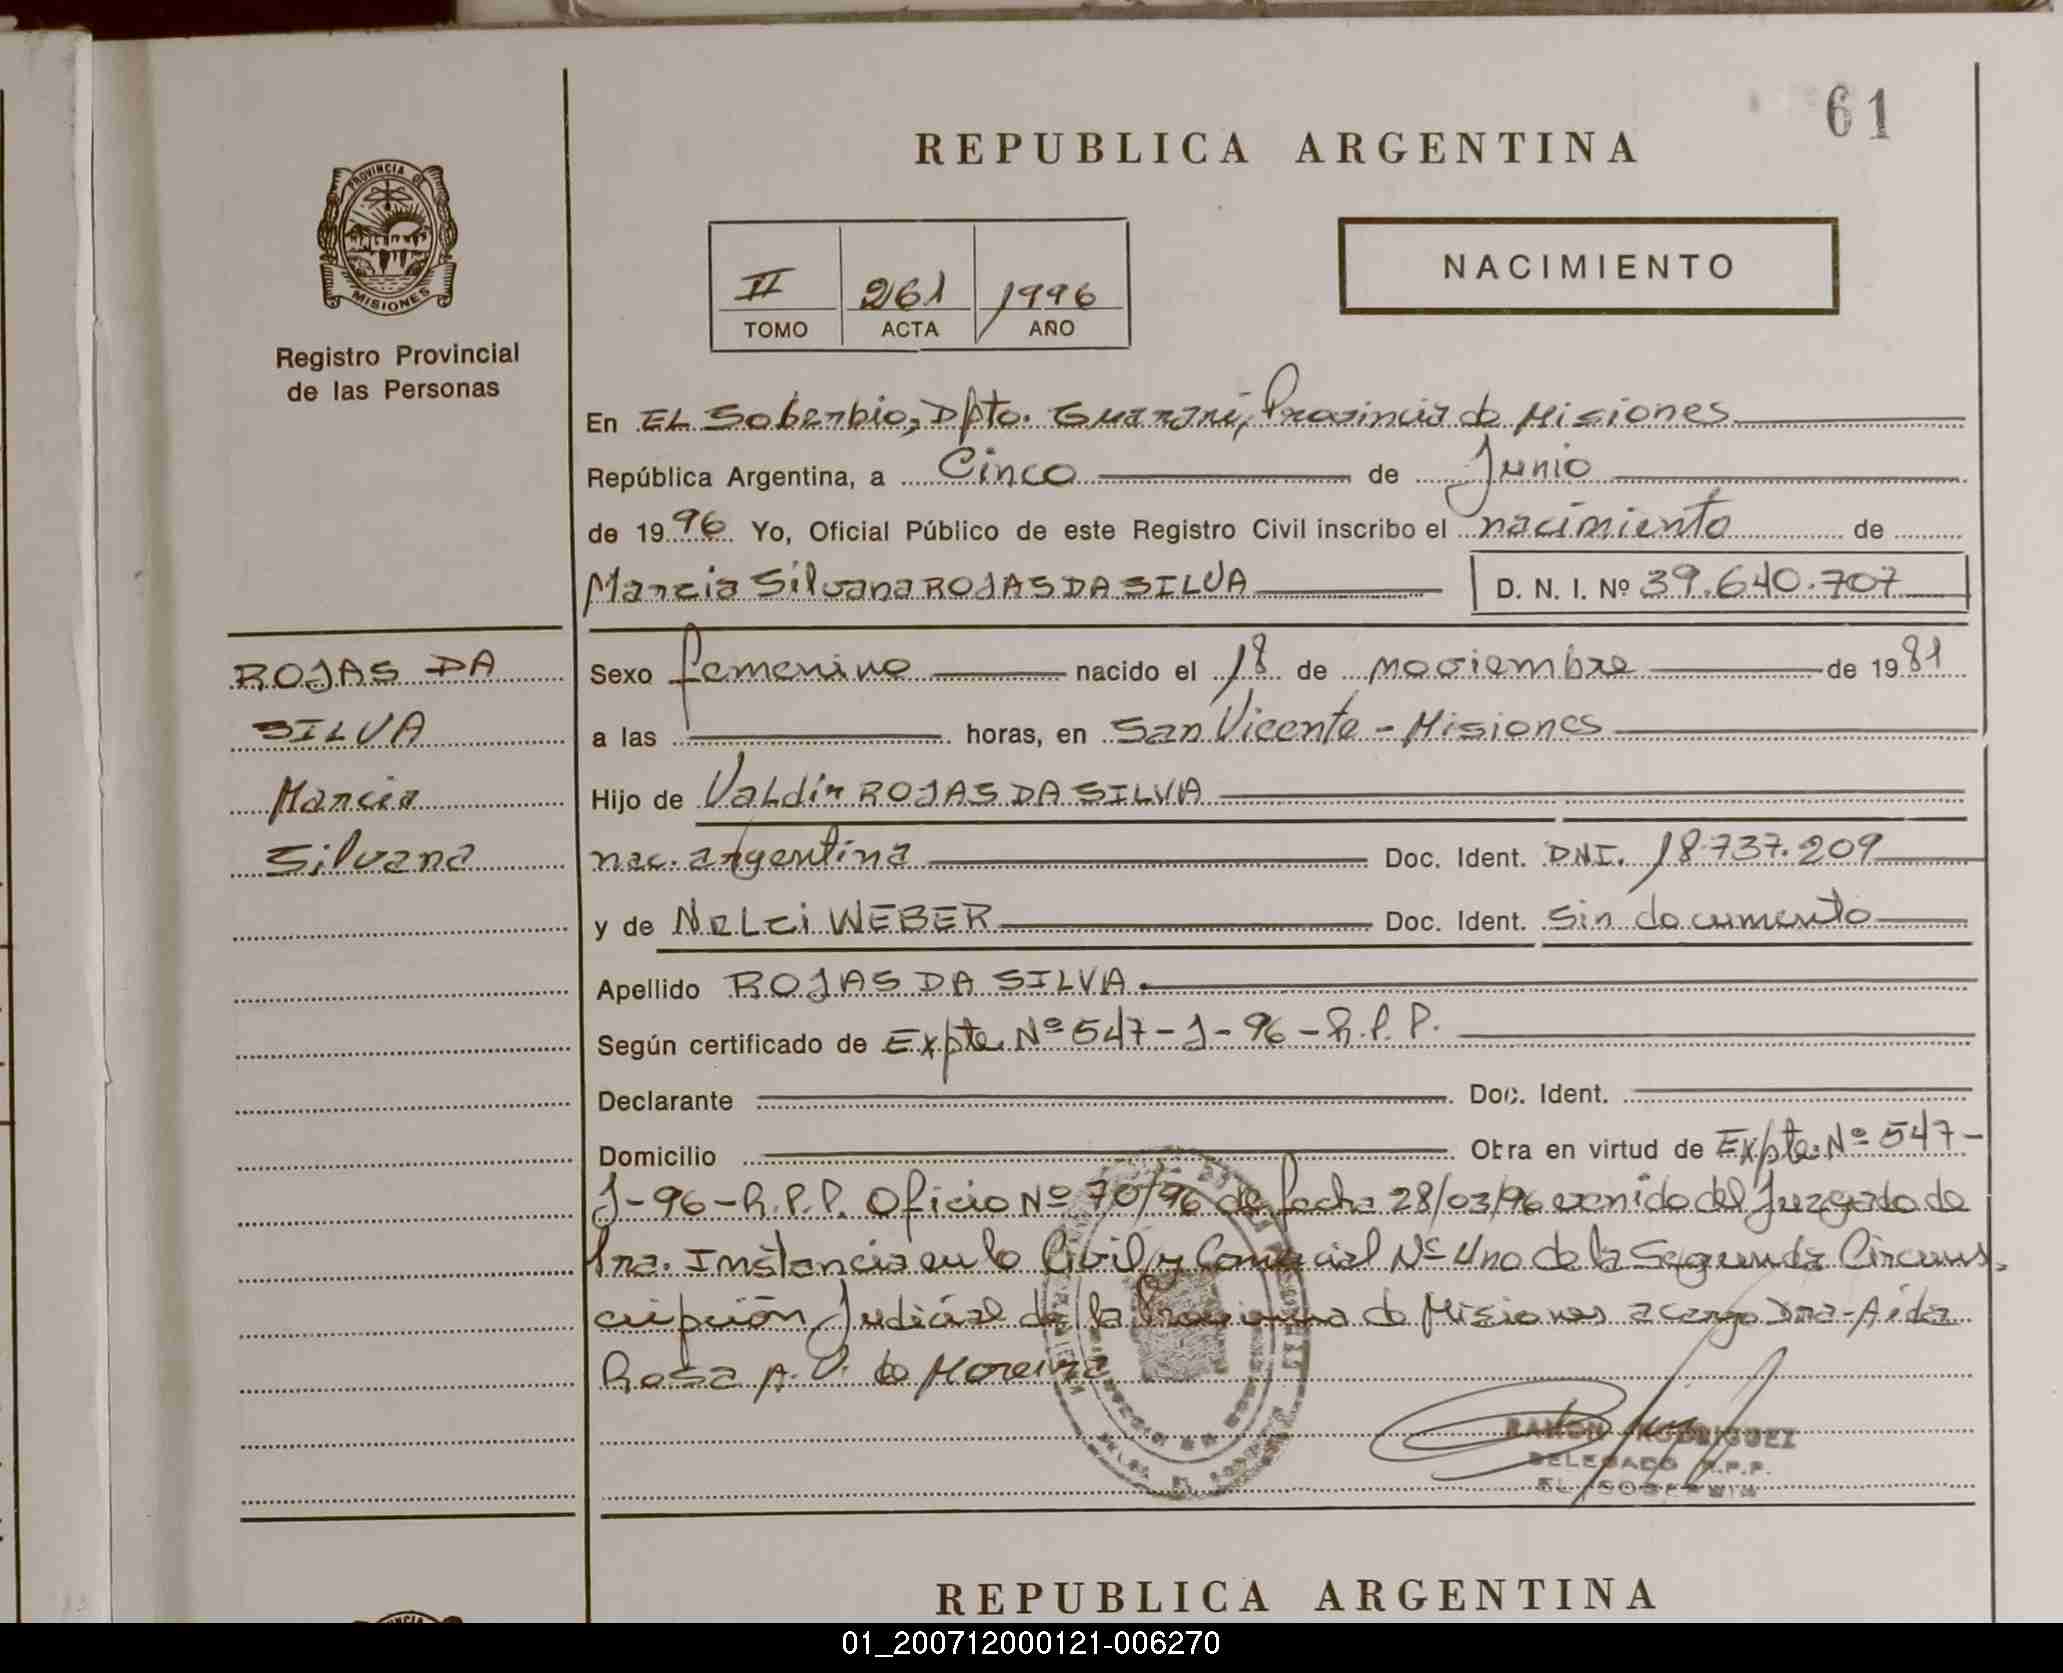 61
REPUBLICA ARGENTINA
PROVINCIA DE
MISIONES
Registro Provincial
de las Personas
II 261 1996
TOMO ACTA AÑO
NACIMIENTO
En EL Soberbio, Dpto. Guaraní, Provincia de Misiones
República Argentina, a Cinco de Junio
de 1996 Yo, Oficial Público de este Registro Civil inscribo el nacimiento de
Marcia Silvana ROJAS DA SILVA D. N. I. Nº 39.640.707
ROJAS DA
SILVA
Marcia
Silvana
Sexo femenino nacido el 18 de noviembre de 1981
a las horas, en San Vicente - Misiones
Hijo de Valdir ROJAS DA SILVA
nac. argentina Doc. Ident. DNI. 18.737.209
y de Nelci WEBER Doc. Ident. Sin documento
Apellido ROJAS DA SILVA.
Según certificado de Expte Nº 547-J-96-R.P.P.
Declarante Doc. Ident.
Domicilio Otra en virtud de Expte. Nº 547-
J-96-R.P.P. Oficio Nº 70/96 de fecha 28/03/96 venido del Juzgado de
1ra. Instancia en lo Civil y Comercial Nº Uno de la Segunda Circuns-
cripción Judicial de la Provincia de Misiones a cargo Dra-Aida
Rosa A. V. de Moreira
RAMON RODRIGUEZ
DELEGADO R.P.P.
EL SOBERBIO
REPUBLICA ARGENTINA
01_200712000121-006270